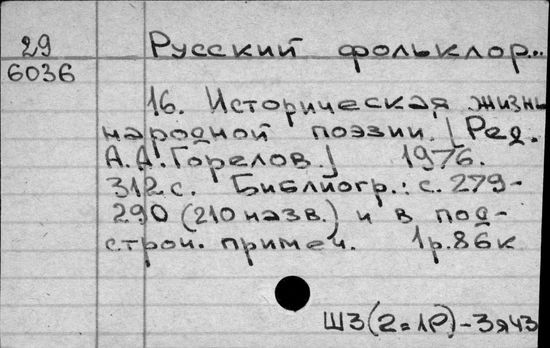 29
6036
Русский фольклор...
16. Историческая жизнь
народной поэзии. [Ред.
А.А. Горелов.] 1976.
312 с. Библиогр.: с. 279-
290 (210 назв.) и в под-
строч. примеч. 1р.86к
Ш3(2=1Р)-3я43